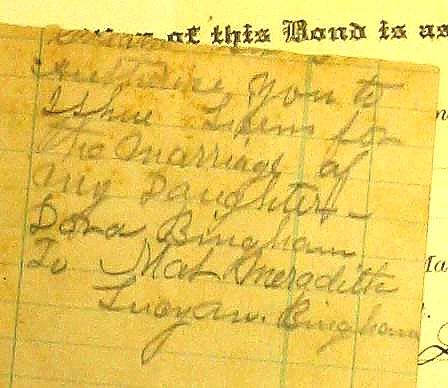 of this Bond is as
Autherise you to
Ishue Lisens for
the marriage of
my Daughter
Dora Bingham
To Mat Meradith
Lucy an. Bingham